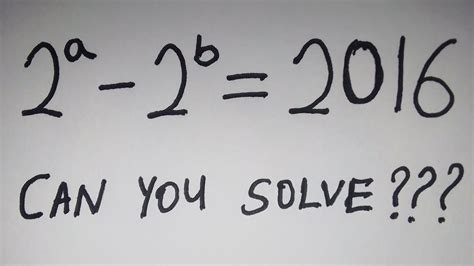 2ᵃ - 2ᵇ = 2016
CAN YOU SOLVE???